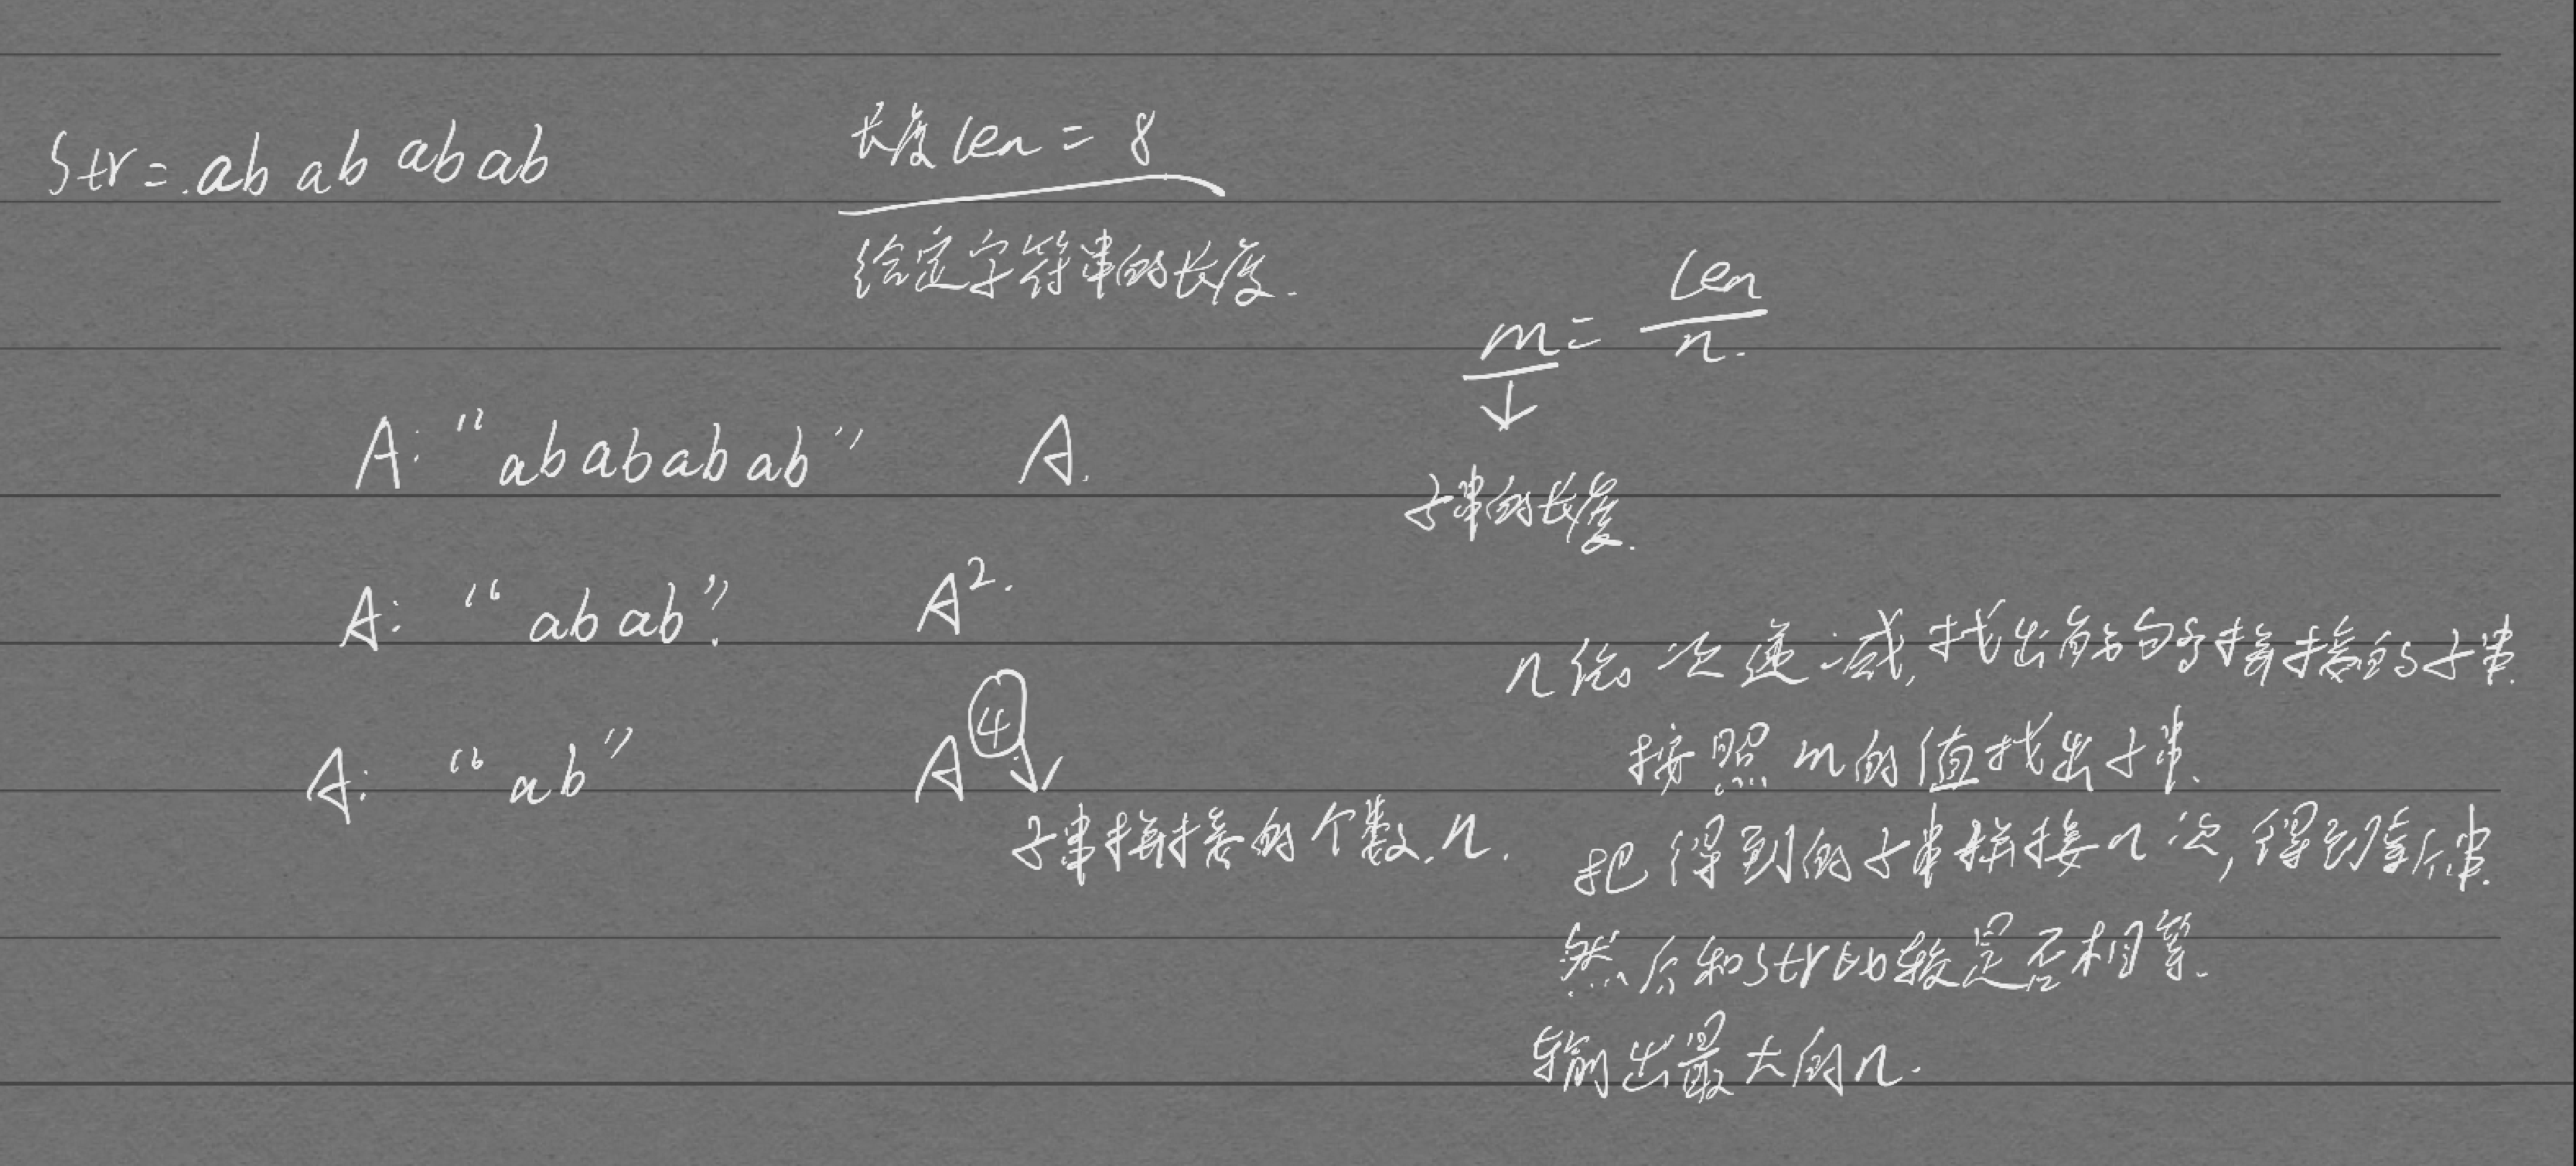 Str = ab ab ab ab
长度 len = 8
给定字符串的长度.
m = len / n.
子串的长度.
A: "ab ab ab ab" A.
A: "ab ab". A².
A: "ab" A④
子串拼接的个数.n.
n 依次递减,找出能够拼接的子串.
按照m的值找出子串.
把得到的子串拼接n次,得到串.
然后和str比较是否相等.
输出最大的n.